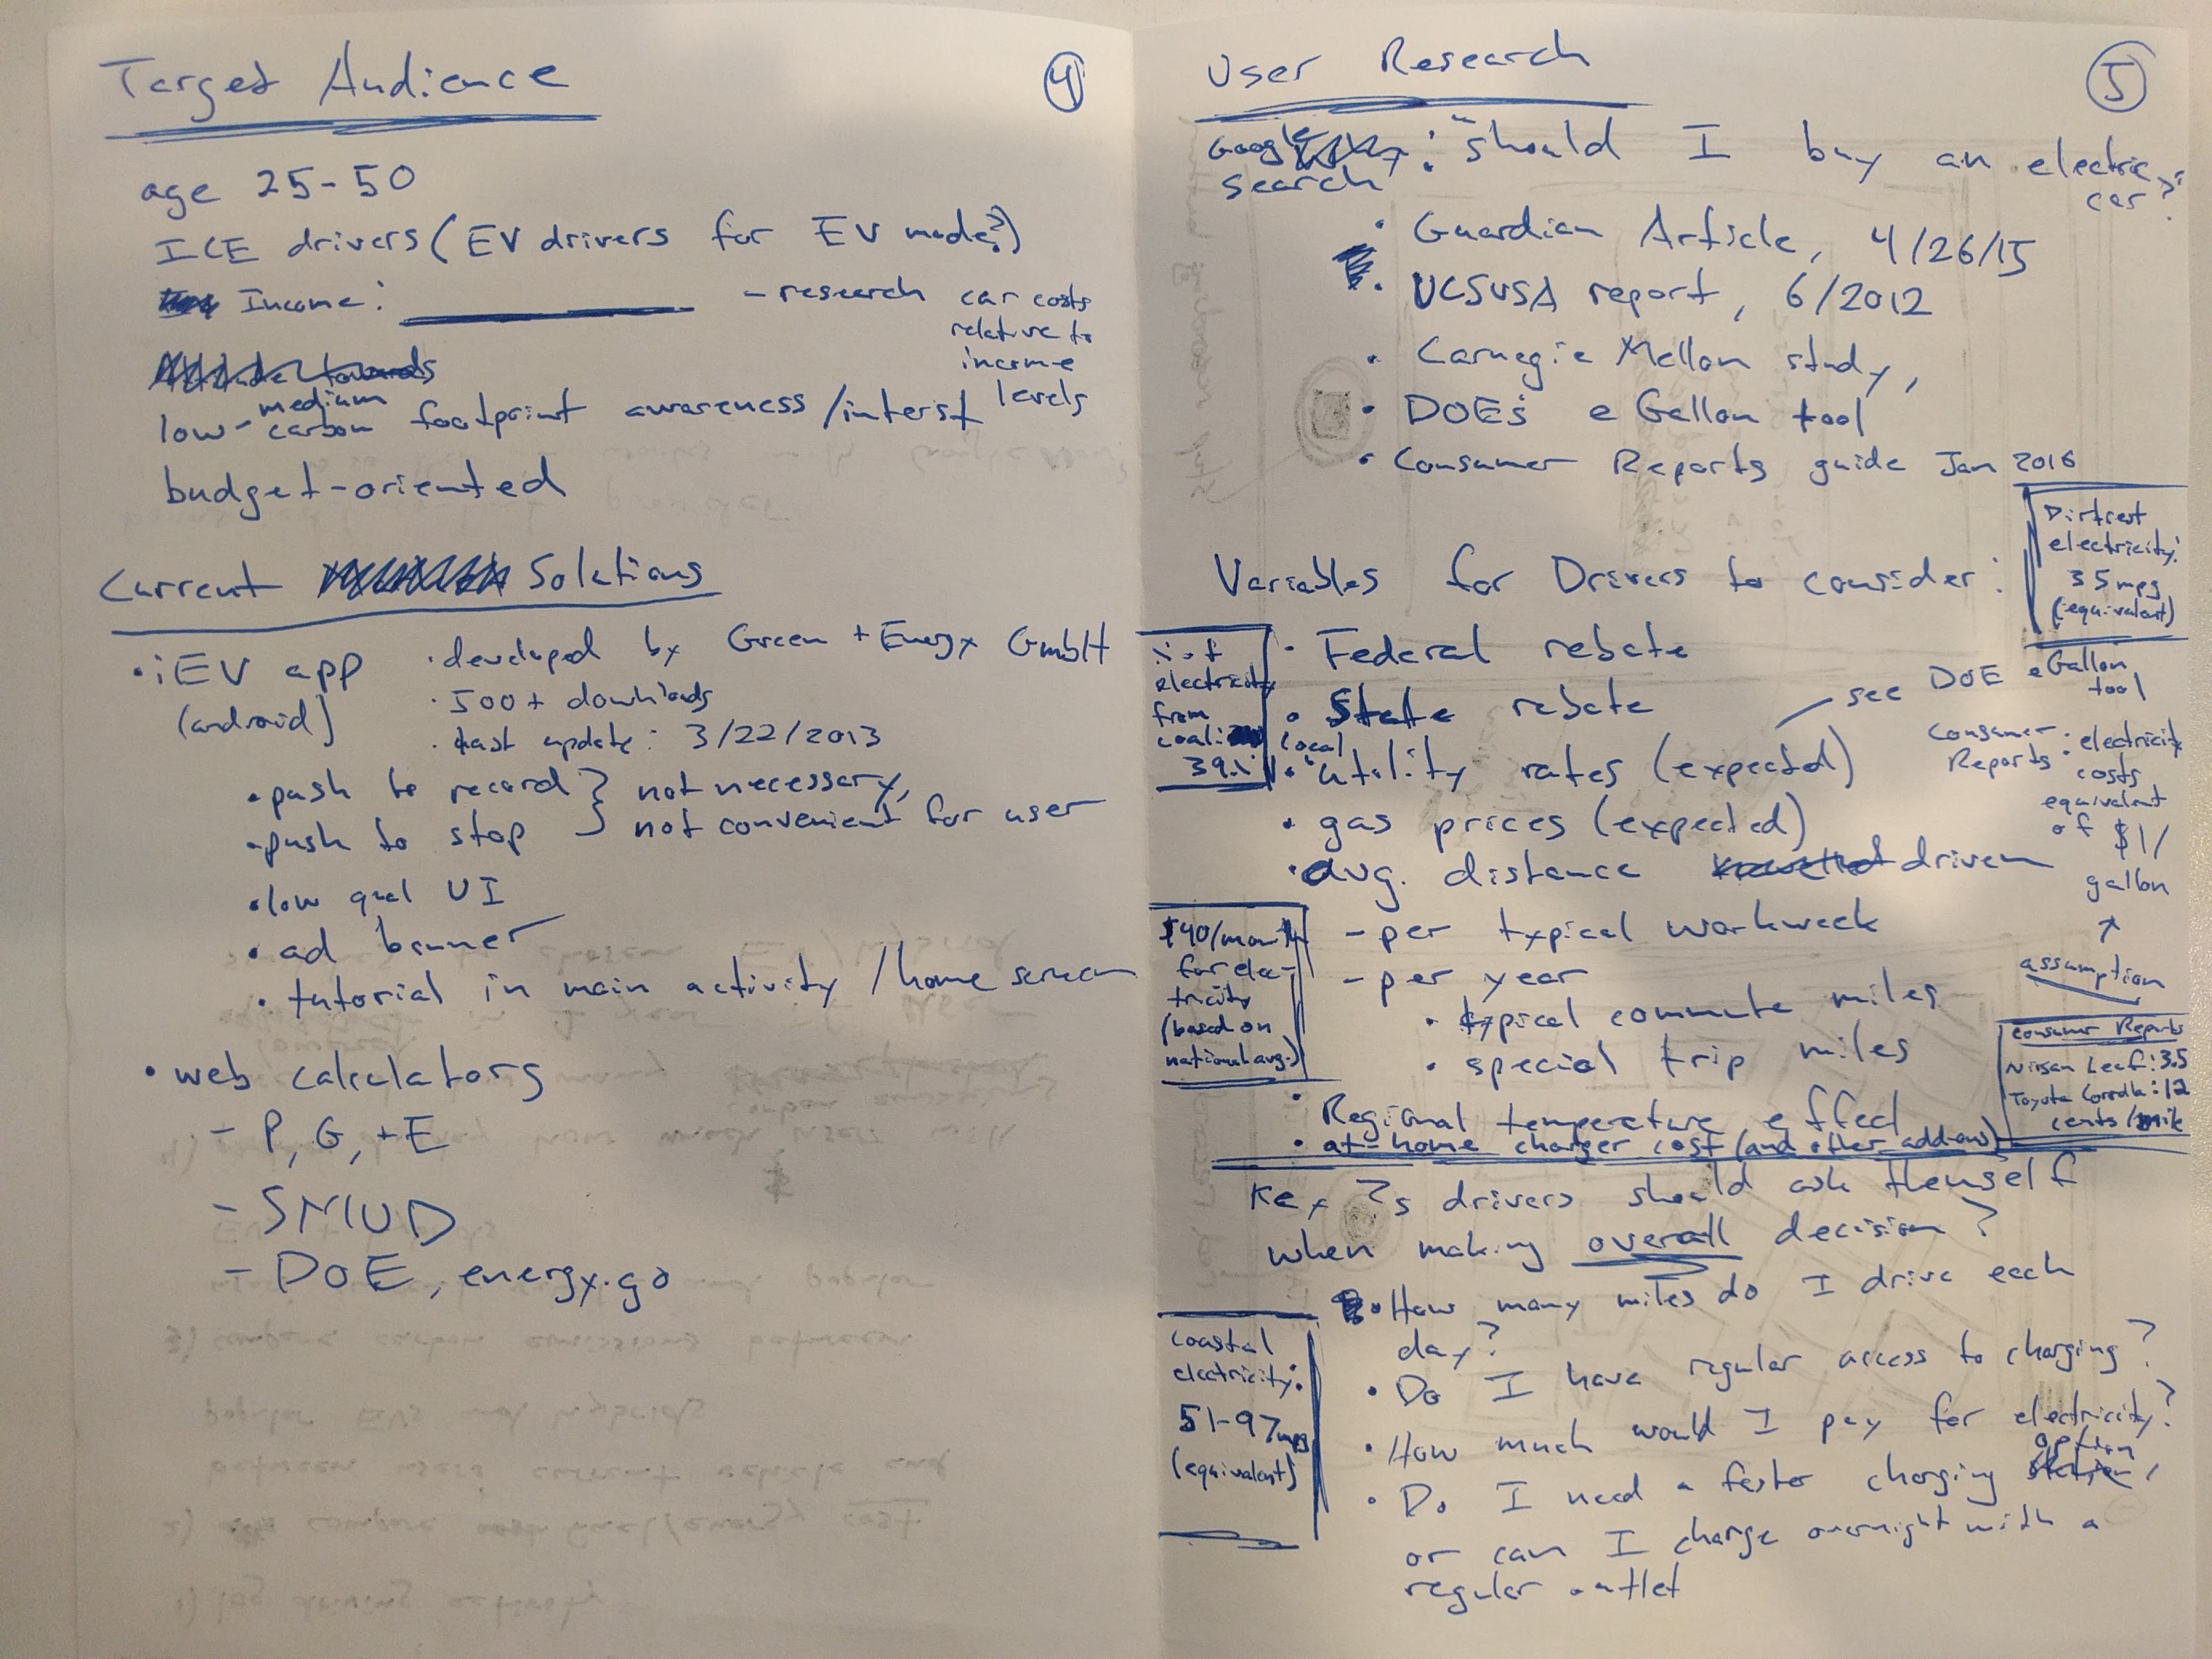 Target Audience
4
age 25-50
ICE drivers (EV drivers for EV mode?)
Income: - research car costs
relative to
income
levels
low-medium
carbon footprint awareness/interst
budget-oriented
Current Solutions
• iEV app
(android)
• developed by Green + Energy GmbH
• 500+ downloads
• last update: 3/22/2013
• push to record } not necessary,
• push to stop } not convenient for user
• low qual UI
• ad banner
• tutorial in main activity / home screen
• web calculators
- P, G, + E
- SMUD
- DOE, energy.go
User Research
5
Google
search : "should I buy an electric
car?"
• Guardian Article, 4/26/15
• UCSUSA report, 6/2012
• Carnegie Mellon study,
• DOE's eGallon tool
• Consumer Reports guide Jan 2016
Dirtiest
electricity:
35 mpg
(equivalent)
Variables for Drivers to consider:
• Federal rebate
• State rebate
• local utility rates (expected)
see DOE eGallon
tool
• gas prices (expected)
• avg. distance travelled driven
- per typical workweek
- per year
• typical commute miles
• special trip miles
• Regional temperature effect
• at-home charger cost (and other add-ons)
electricity
from
coal:
39.%
Consumer
Reports : electricity
costs
equivalent
of $1/
gallon
↑
assumption
$40/month
for elec-
tricity
(based on
national avg.)
Consumer Reports
Nissan Leaf: 3.5
Toyota Corolla: 12
cents/mile
Key ?s drivers should ask themself
when making overall decision?
• How many miles do I drive each
day?
• Do I have regular access to charging?
• How much would I pay for electricity?
• Do I need a faster charging option,
or can I charge overnight with a
regular outlet
Coastal
electricity:
51-97 mpg
(equivalent)